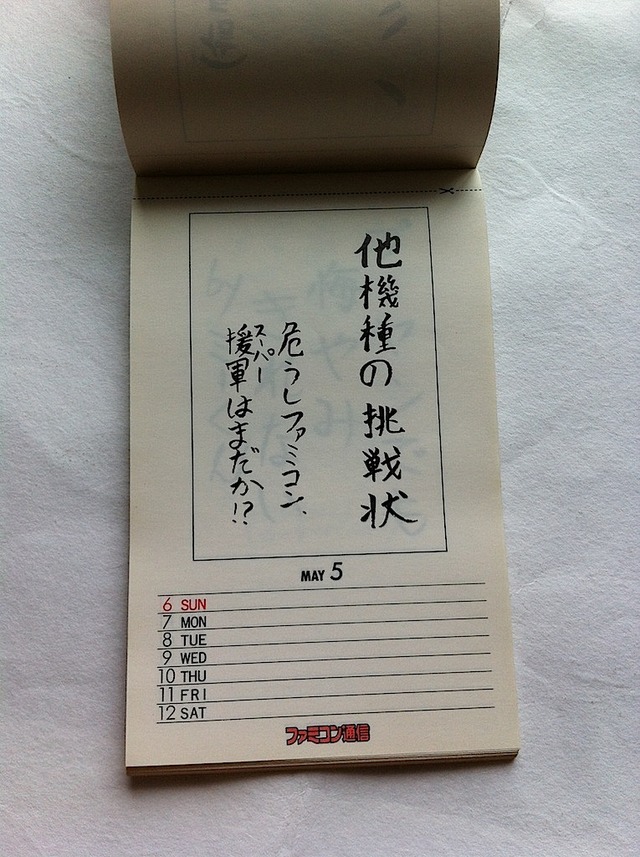 他機種の挑戦状
危うしファミコン、
スーパー
援軍はまだか!?
MAY 5
6 SUN
7 MON
8 TUE
9 WED
10 THU
11 FRI
12 SAT
ファミコン通信